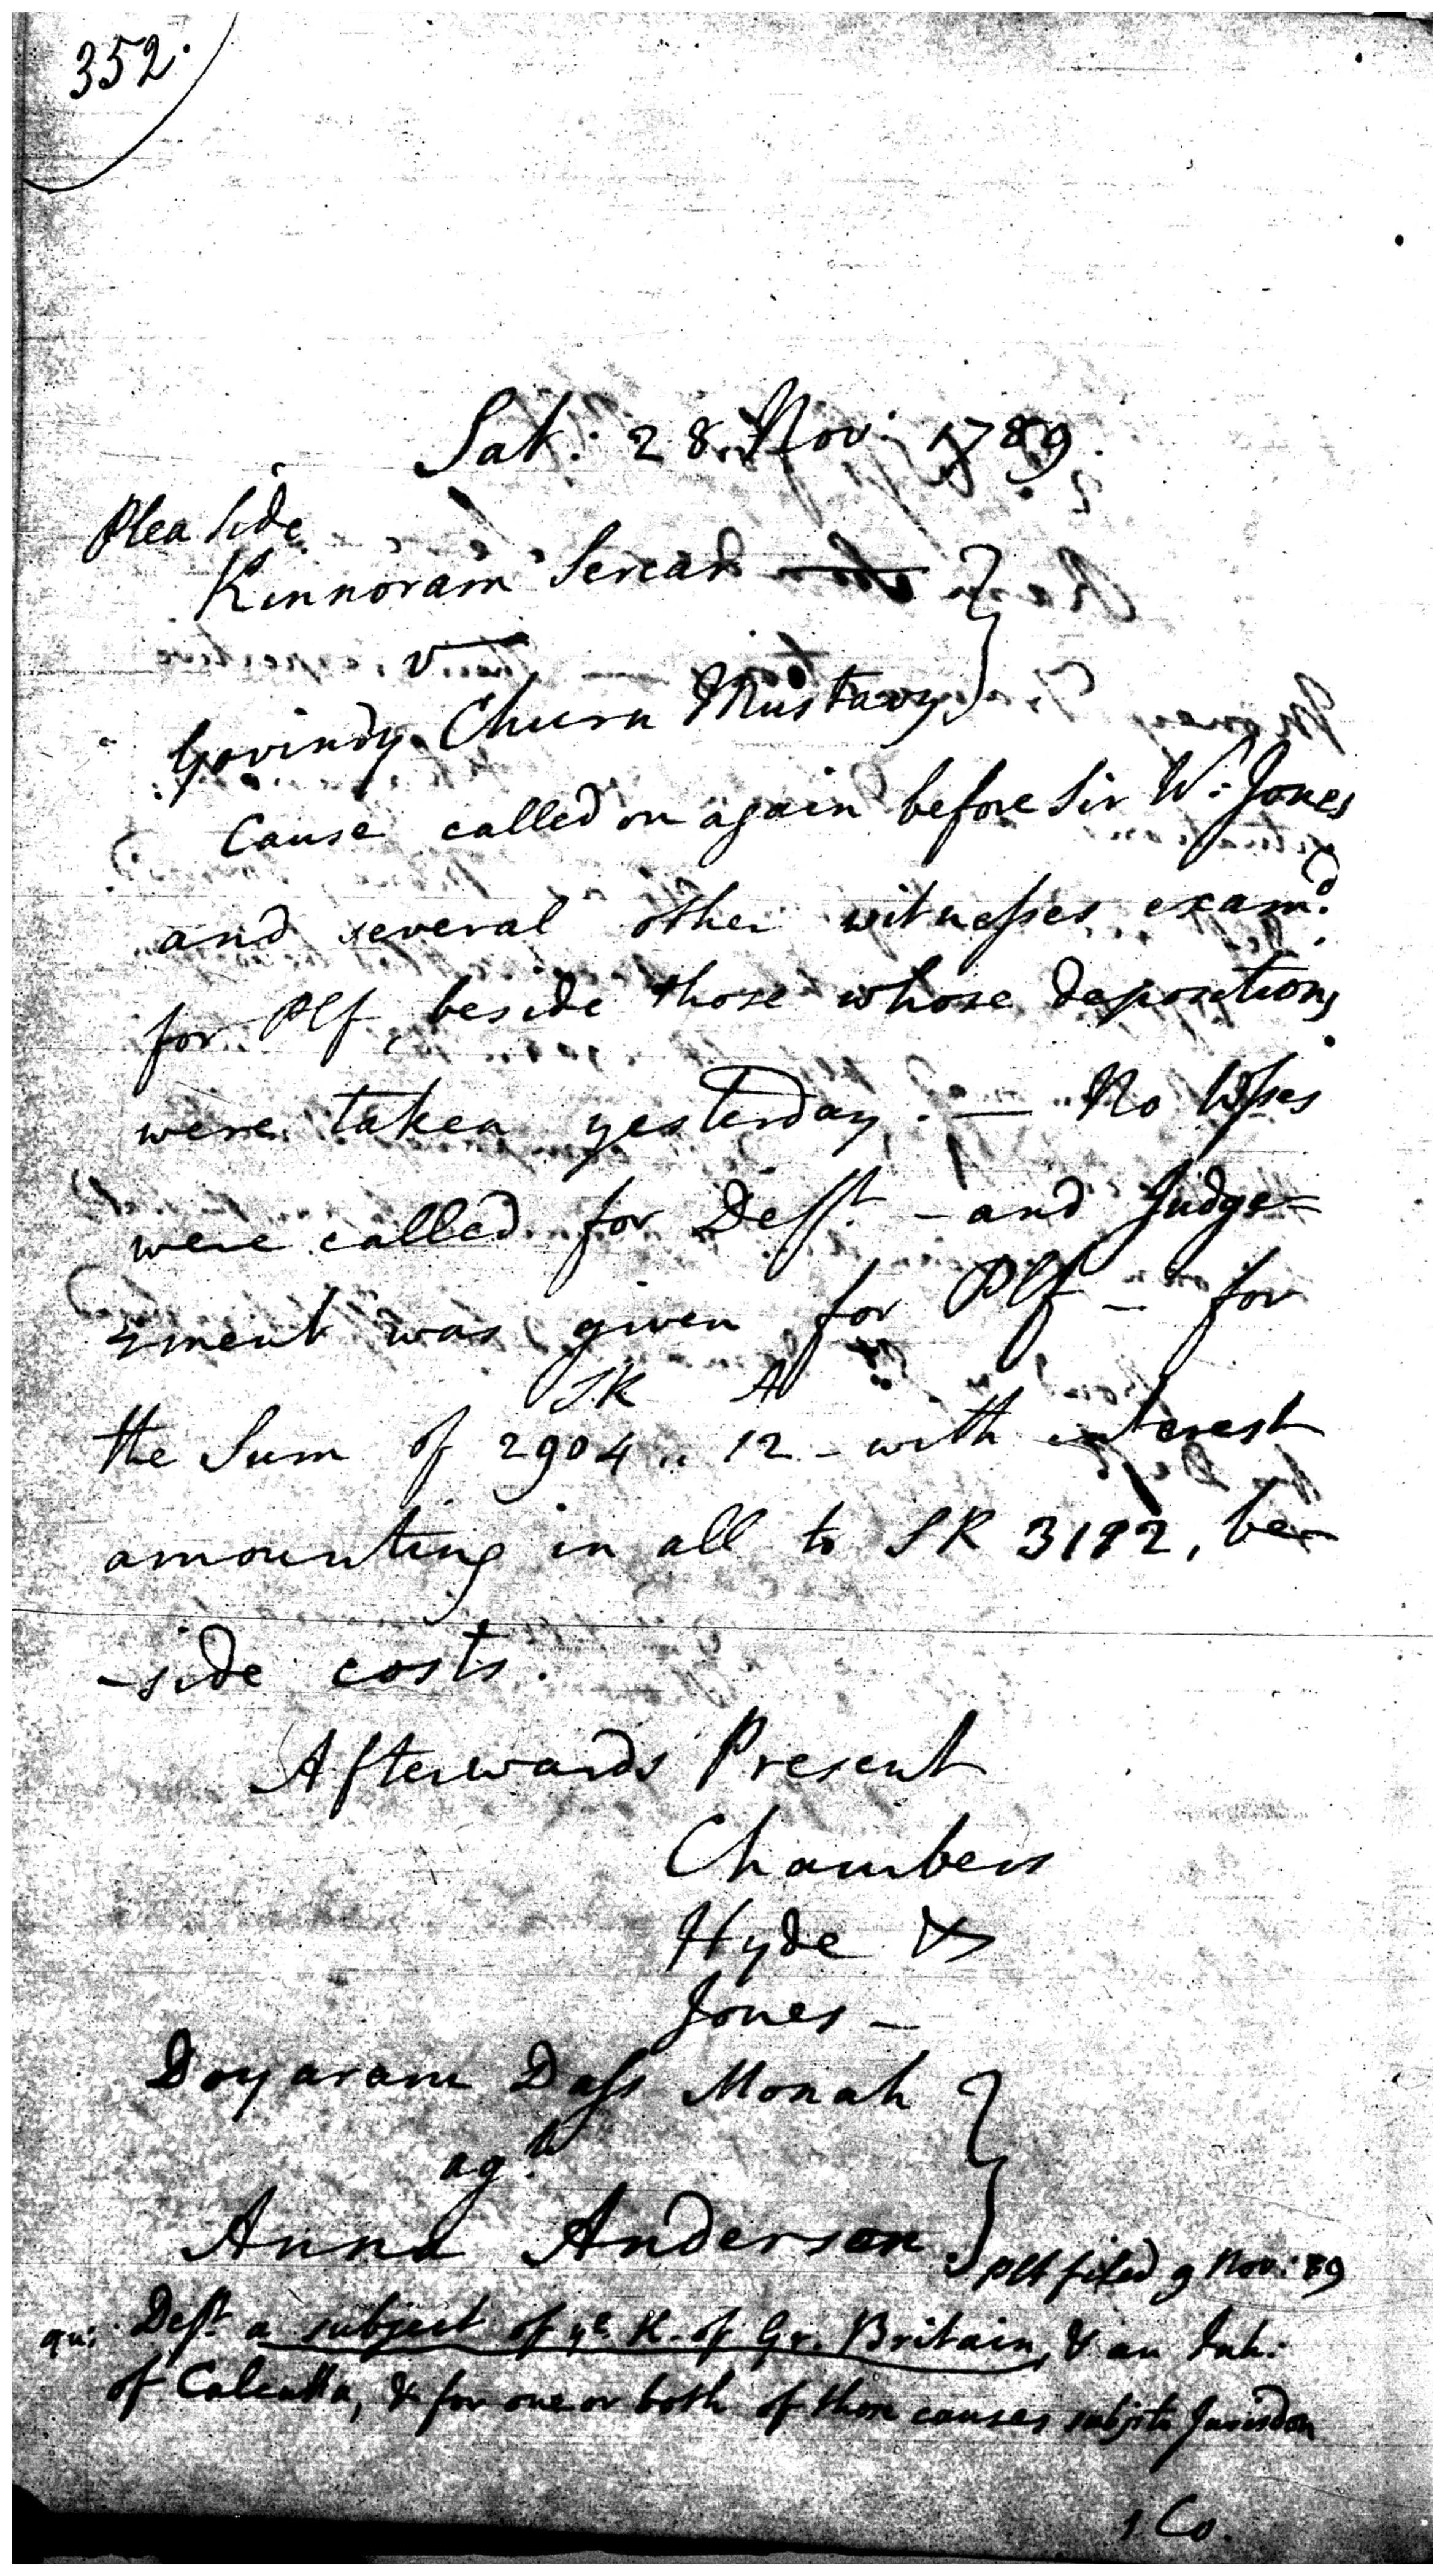 352.
Sat: 28. Nov: 1789.
Plea Side
Kinnoram Sercar
v
Govindy Churn Mustavy
Cause called on again before Sir W: Jones
and several other witnesses exam.d
for Plf, beside those whose depositions
were taken yesterday. — No Wsses
were called for Deft. - and Judge=
=ment was given for Plf - for
SR A
the Sum of 2904 .. 12 - with interest
amounting in all to SR 3192, be-
-side costs.
Afterwards Present
Chambers
Hyde &
Jones -
Doyaram Dass Monah
agt.
Anna Anderson. plt filed 9 Nov: 89
qu: Deft. a subject of ye. K. of Gr. Britain, & an Inh:
of Calcutta, & for one or both of those causes subj to Jurisdon
1 Co.